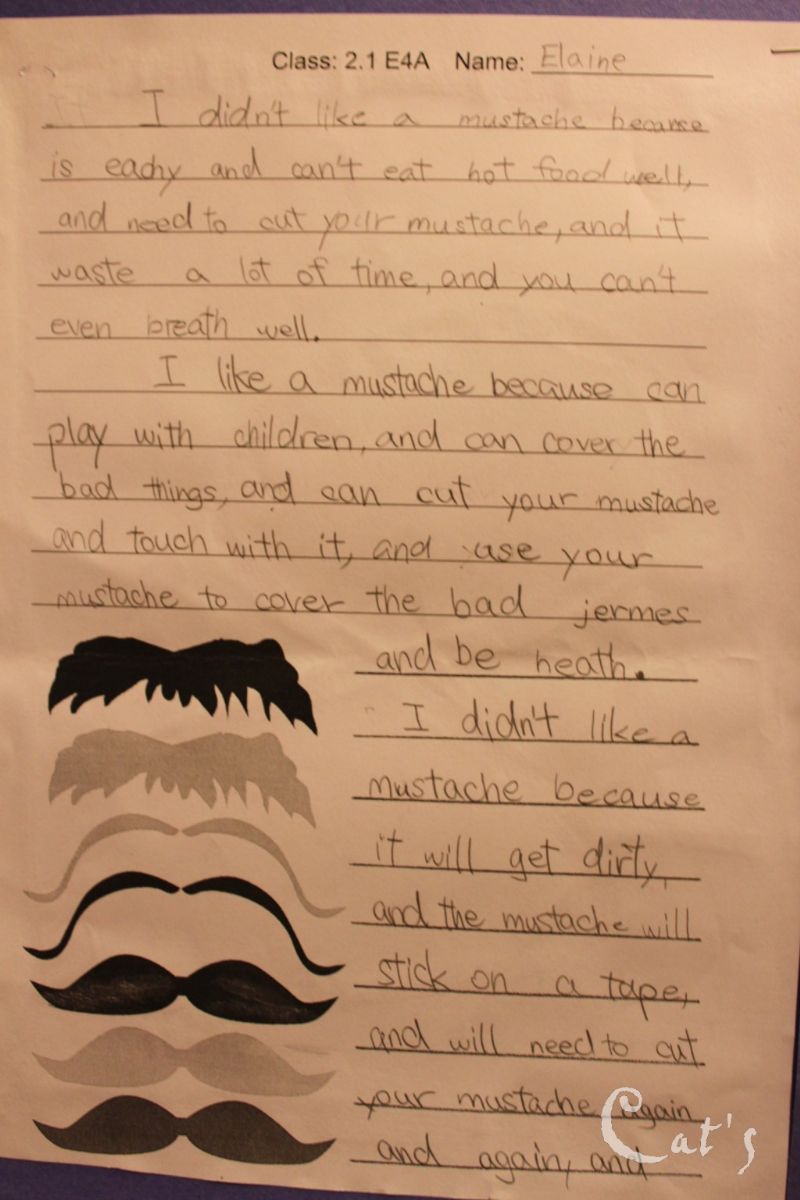 Class: 2.1 E4A Name: Elaine
I didn't like a mustache because
is eachy and can't eat hot food well,
and need to cut your mustache, and it
waste a lot of time, and you can't
even breath well.
I like a mustache because can
play with children, and can cover the
bad things, and can cut your mustache
and touch with it, and use your
mustache to cover the bad jermes
and be heath.
I didn't like a
mustache because
it will get dirty,
and the mustache will
stick on a tape,
and will need to cut
your mustache again
and again, and
Cat's